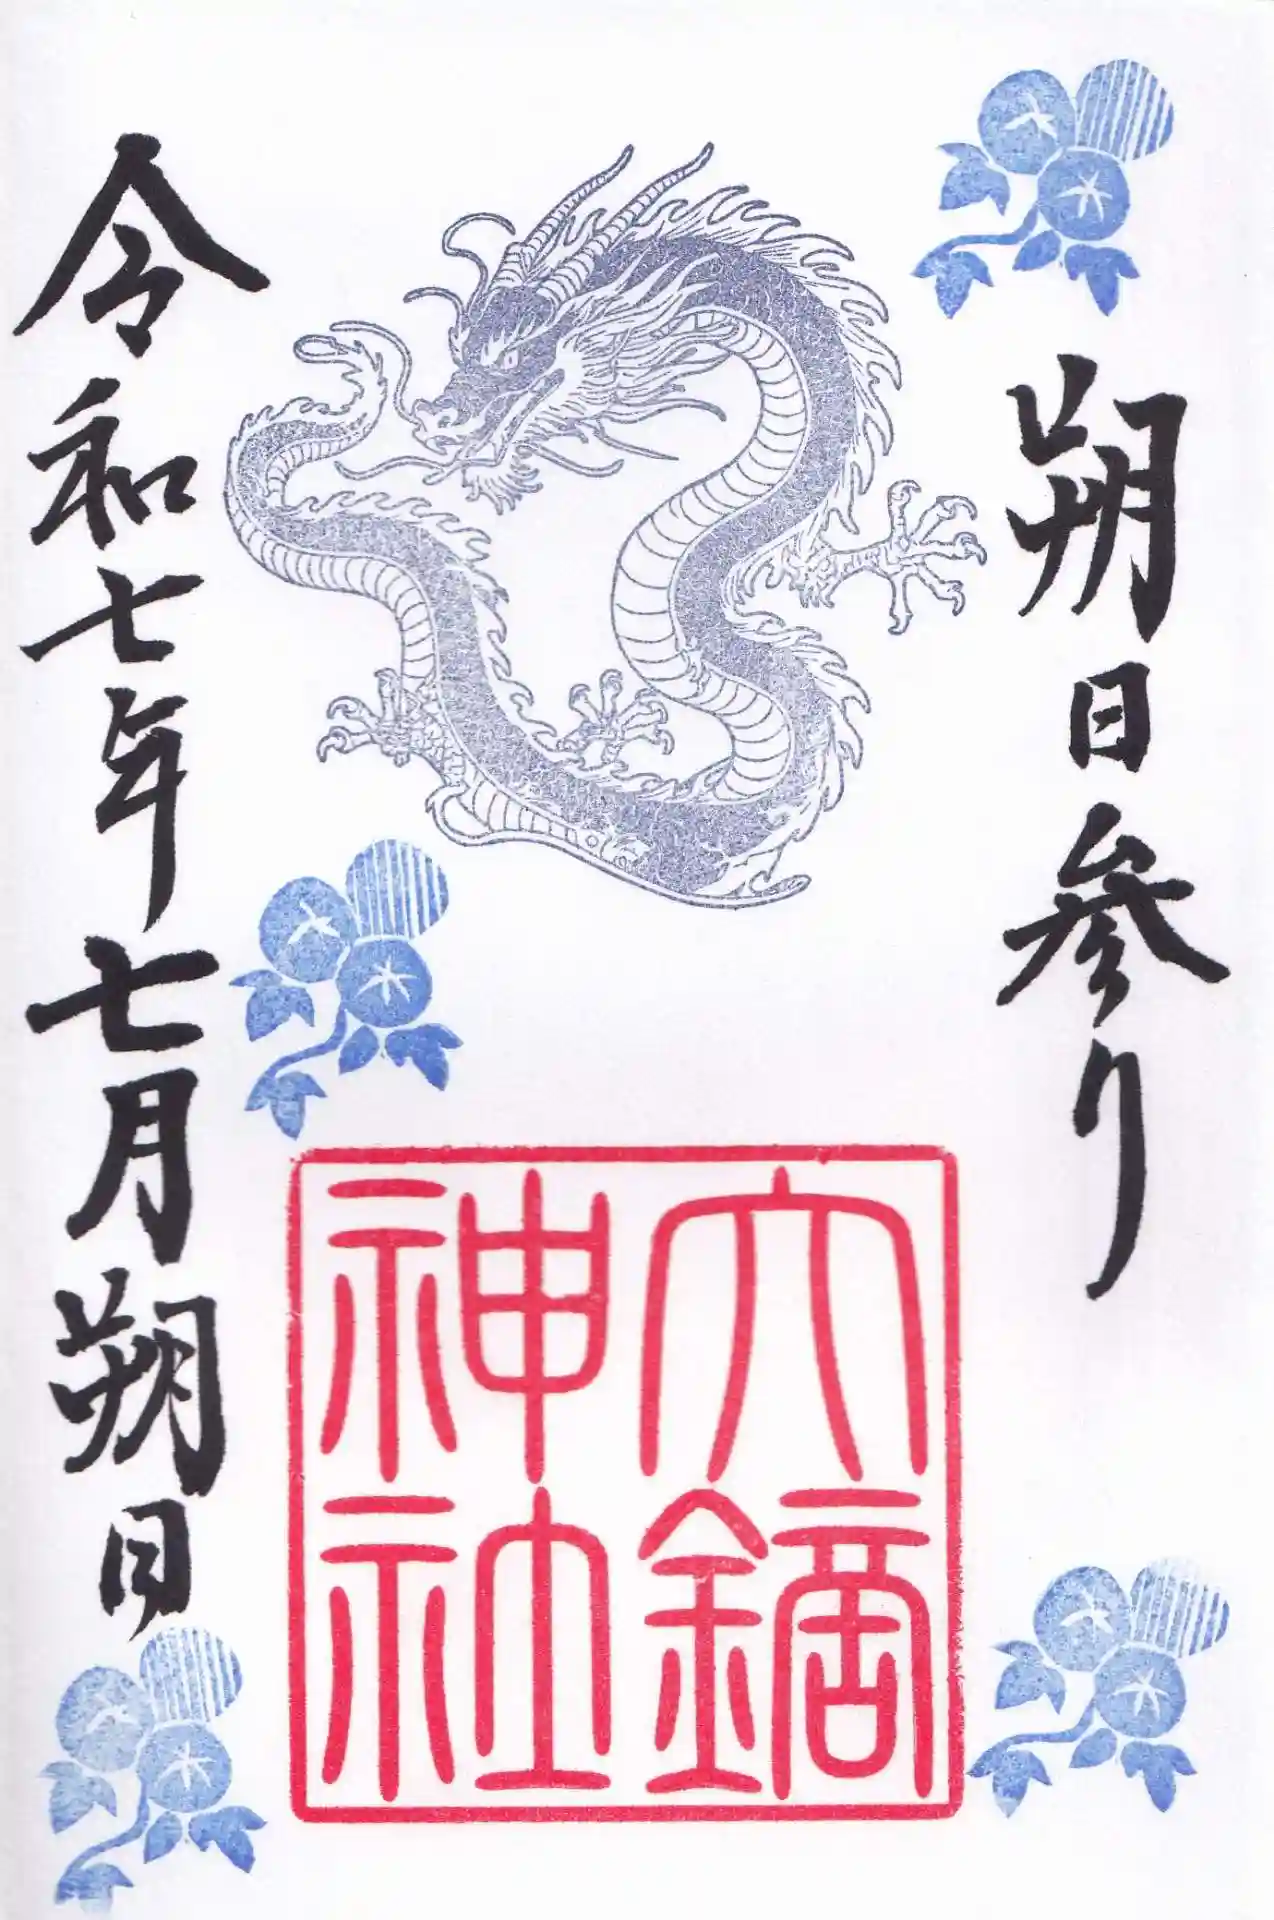 朔日参り
大鏑
神社
令和七年七月朔日